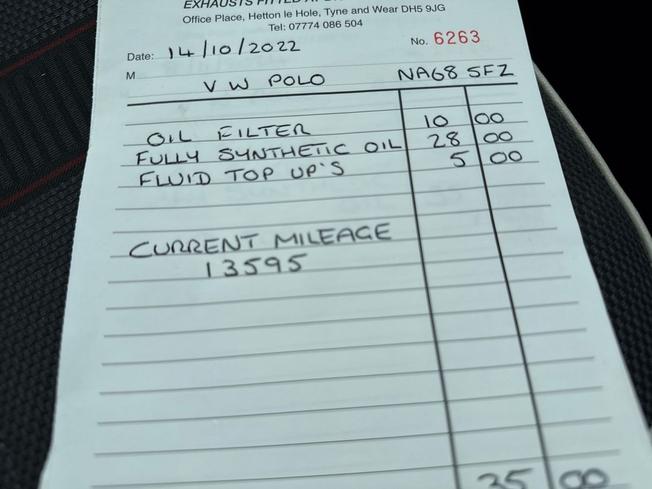 EXHAUSTS FITTED
Office Place, Hetton le Hole, Tyne and Wear DH5 9JG
Tel: 07774 086 504
Date: 14/10/2022 No. 6263
M VW POLO NA68 SFZ
OIL FILTER 10 00
FULLY SYNTHETIC OIL 28 00
FLUID TOP UP'S 5 00
CURRENT MILEAGE
13595
35 00